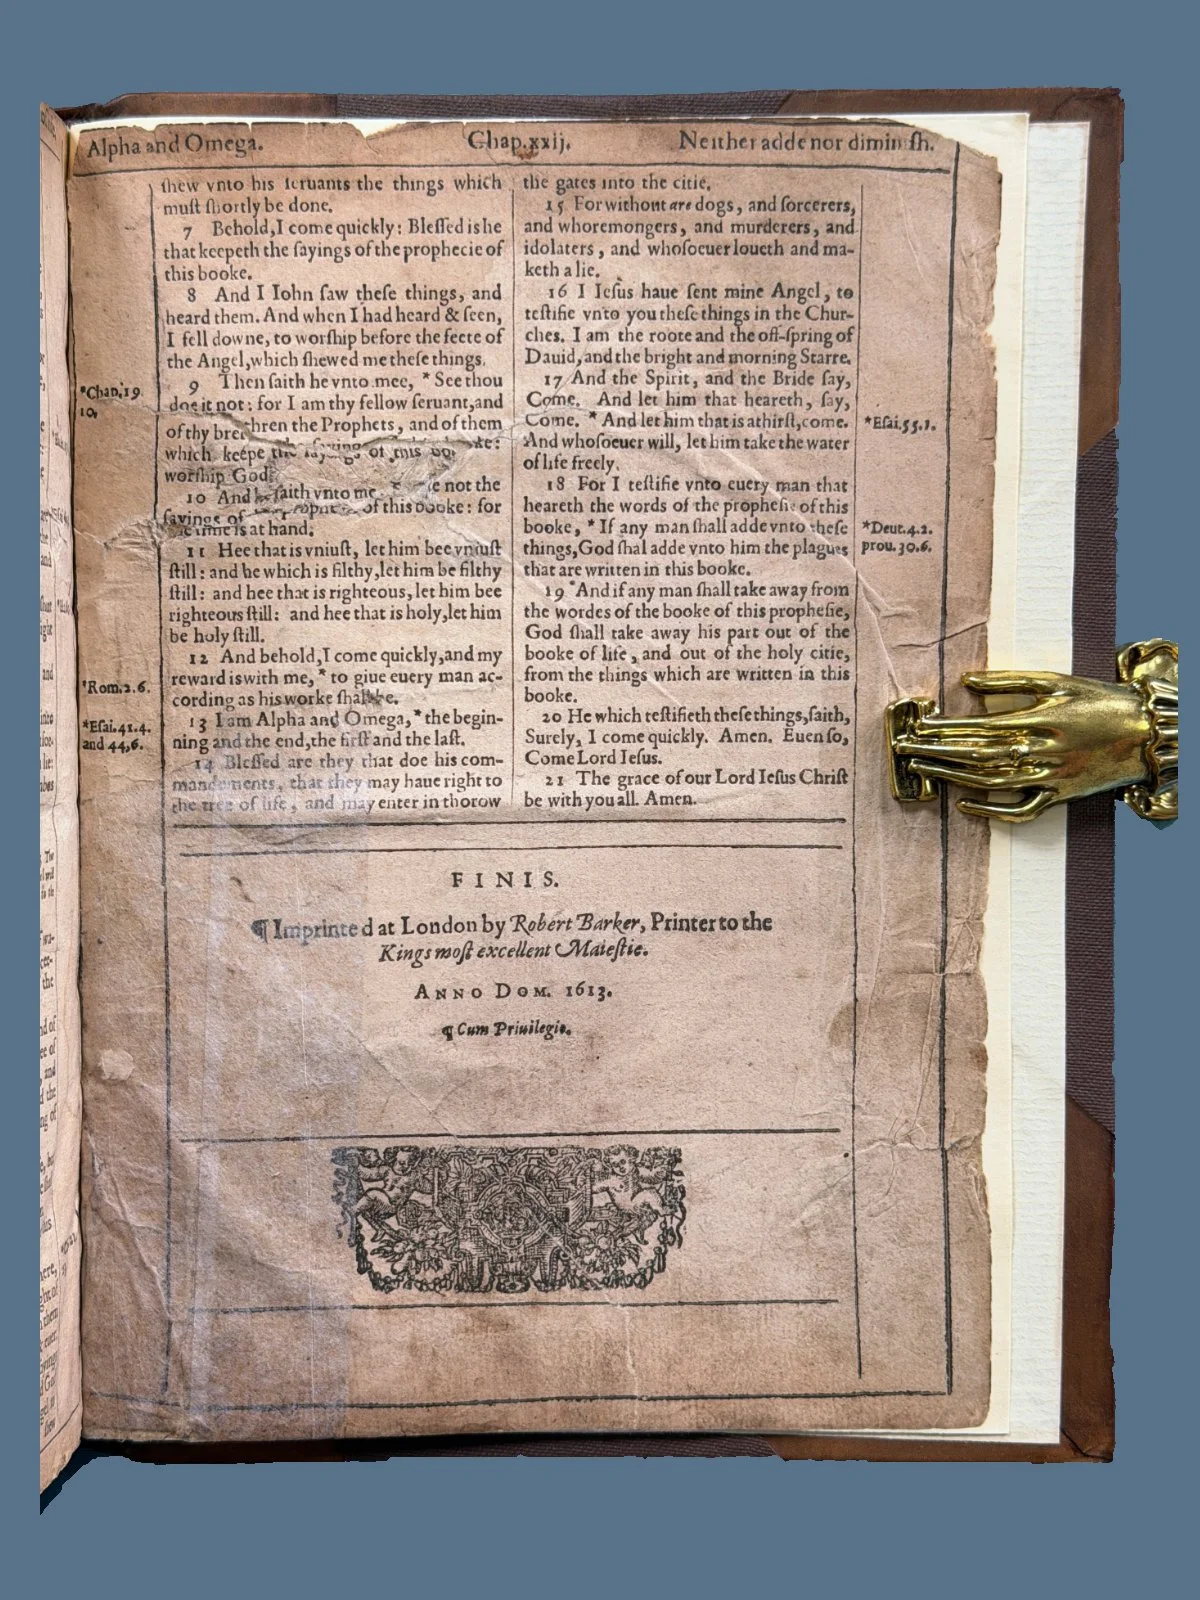 Alpha and Omega. Chap.xxij. Neither adde nor diminiſh.
ſhew vnto his ſeruants the things which
muſt ſhortly be done.
7 Behold, I come quickly: Bleſſed is he
that keepeth the ſayings of the prophecie of
this booke.
8 And I Iohn ſaw theſe things, and
heard them. And when I had heard & ſeen,
I fell downe, to worſhip before the feete of
the Angel, which ſhewed me theſe things.
9 Then ſaith he vnto mee, * See thou
doe it not: for I am thy fellow ſeruant, and
of thy brethren the Prophets, and of them
which keepe the ſayings of this booke:
worſhip God.
10 And he ſaith vnto me, not the
ſayings of the prophecie of this booke: for
the time is at hand.
11 Hee that is vniuſt, let him bee vniuſt
ſtill: and he which is filthy, let him be filthy
ſtill: and hee that is righteous, let him bee
righteous ſtill: and hee that is holy, let him
be holy ſtill.
12 And behold, I come quickly, and my
reward is with me, * to giue euery man ac-
cording as his worke ſhall be.
13 I am Alpha and Omega, * the begin-
ning and the end, the firſt and the laſt.
14 Bleſſed are they that doe his com-
mandements, that they may haue right to
the tree of life, and may enter in thorow
*Chap.19
10.
*Rom.2.6.
*Eſai.41.4.
and 44,6.
the gates into the citie.
15 For without are dogs, and ſorcerers,
and whoremongers, and murderers, and
idolaters, and whoſoeuer loueth and ma-
keth a lie.
16 I Ieſus haue ſent mine Angel, to
teſtifie vnto you theſe things in the Chur-
ches. I am the roote and the off-ſpring of
Dauid, and the bright and morning Starre.
17 And the Spirit, and the Bride ſay,
Come. And let him that heareth, ſay,
Come. * And let him that is athirſt, come.
And whoſoeuer will, let him take the water
of life freely.
18 For I teſtifie vnto euery man that
heareth the words of the propheſie of this
booke, * If any man ſhall adde vnto theſe
things, God ſhal adde vnto him the plagues
that are written in this booke.
19 And if any man ſhall take away from
the wordes of the booke of this propheſie,
God ſhall take away his part out of the
booke of life, and out of the holy citie,
from the things which are written in this
booke.
20 He which teſtifieth theſe things, ſaith,
Surely, I come quickly. Amen. Euen ſo,
Come Lord Ieſus.
21 The grace of our Lord Ieſus Chriſt
be with you all. Amen.
*Eſai.55.1.
*Deut.4.2.
prou.30.6.
FINIS.
¶ Imprinted at London by Robert Barker, Printer to the
Kings moſt excellent Maieſtie.
ANNO DOM. 1613.
¶ Cum Priuilegio.